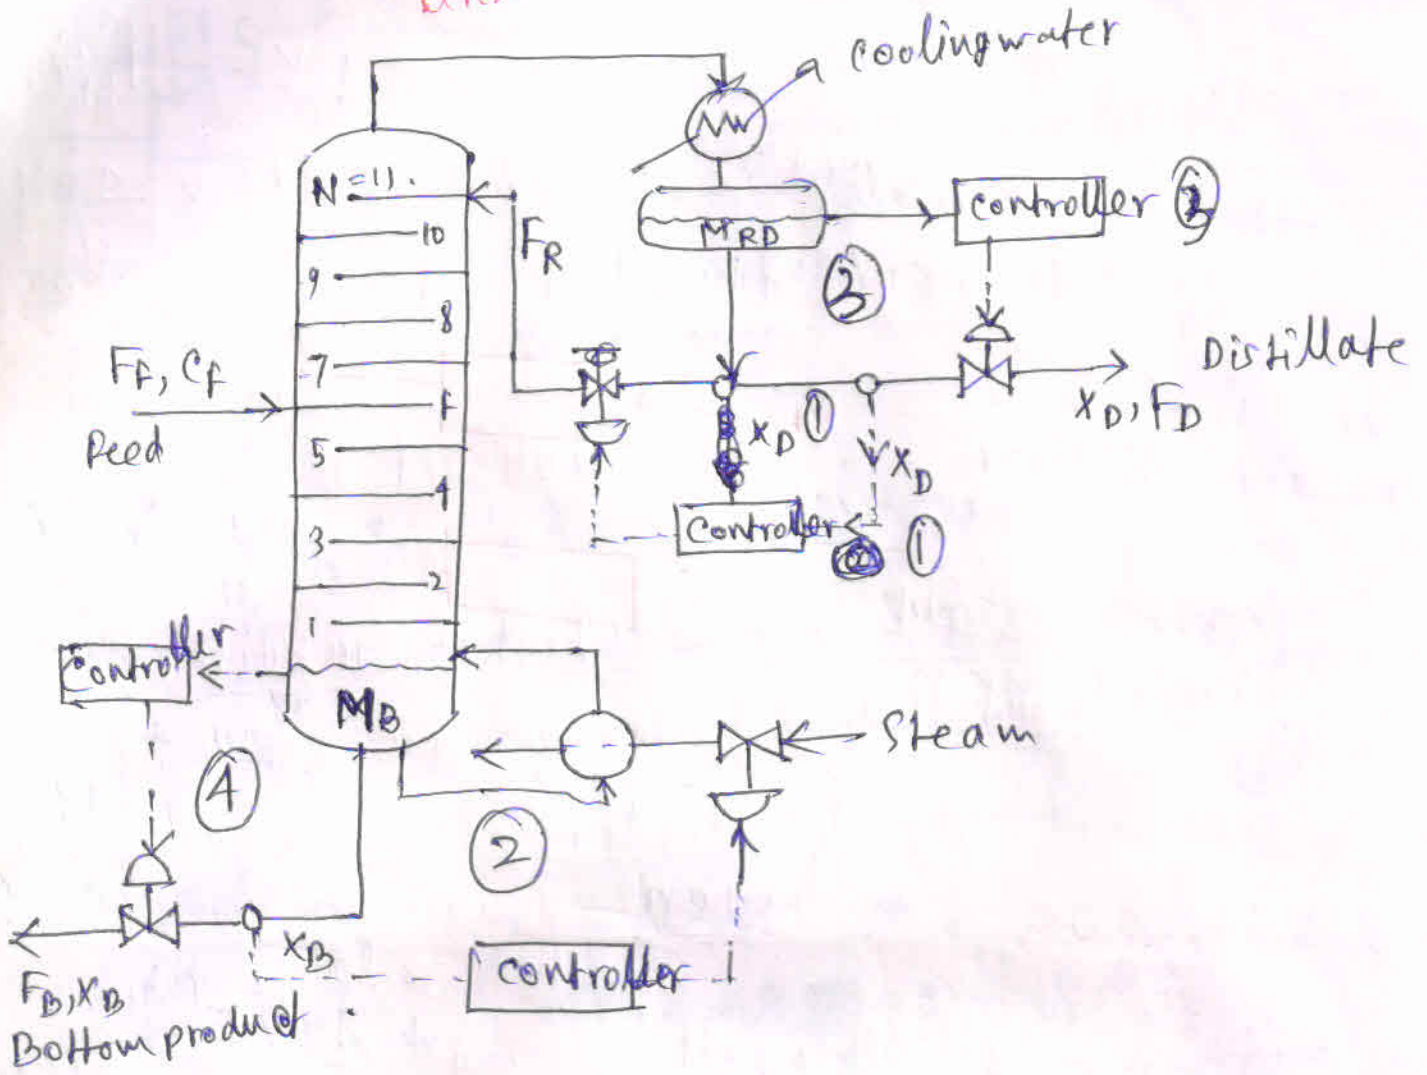 coolingwater
N=11.
10
9
8
7
5
4
3
2
1
F_R
M_RD
controller ③
③
F_F, C_F
Feed
Distillate
X_D, F_D
X_D ①
X_D
Controller
①
Controller
M_B
④
②
Steam
X_B
controller
F_B, X_B
Bottom product